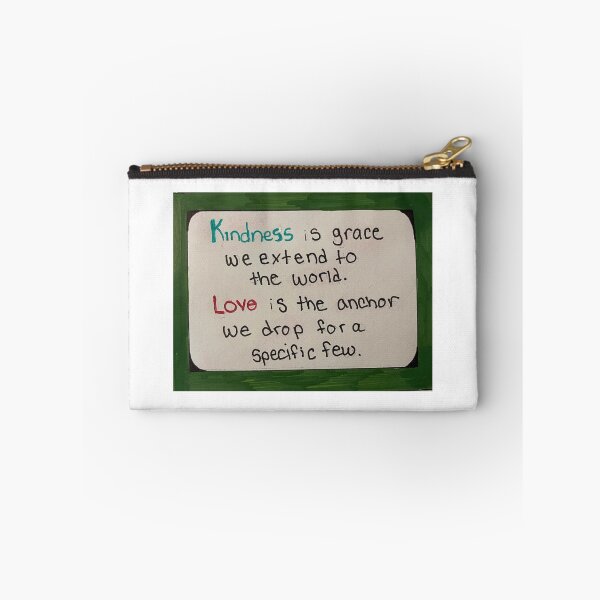 Kindness is grace
we extend to
the world.
Love is the anchor
we drop for a
specific few.